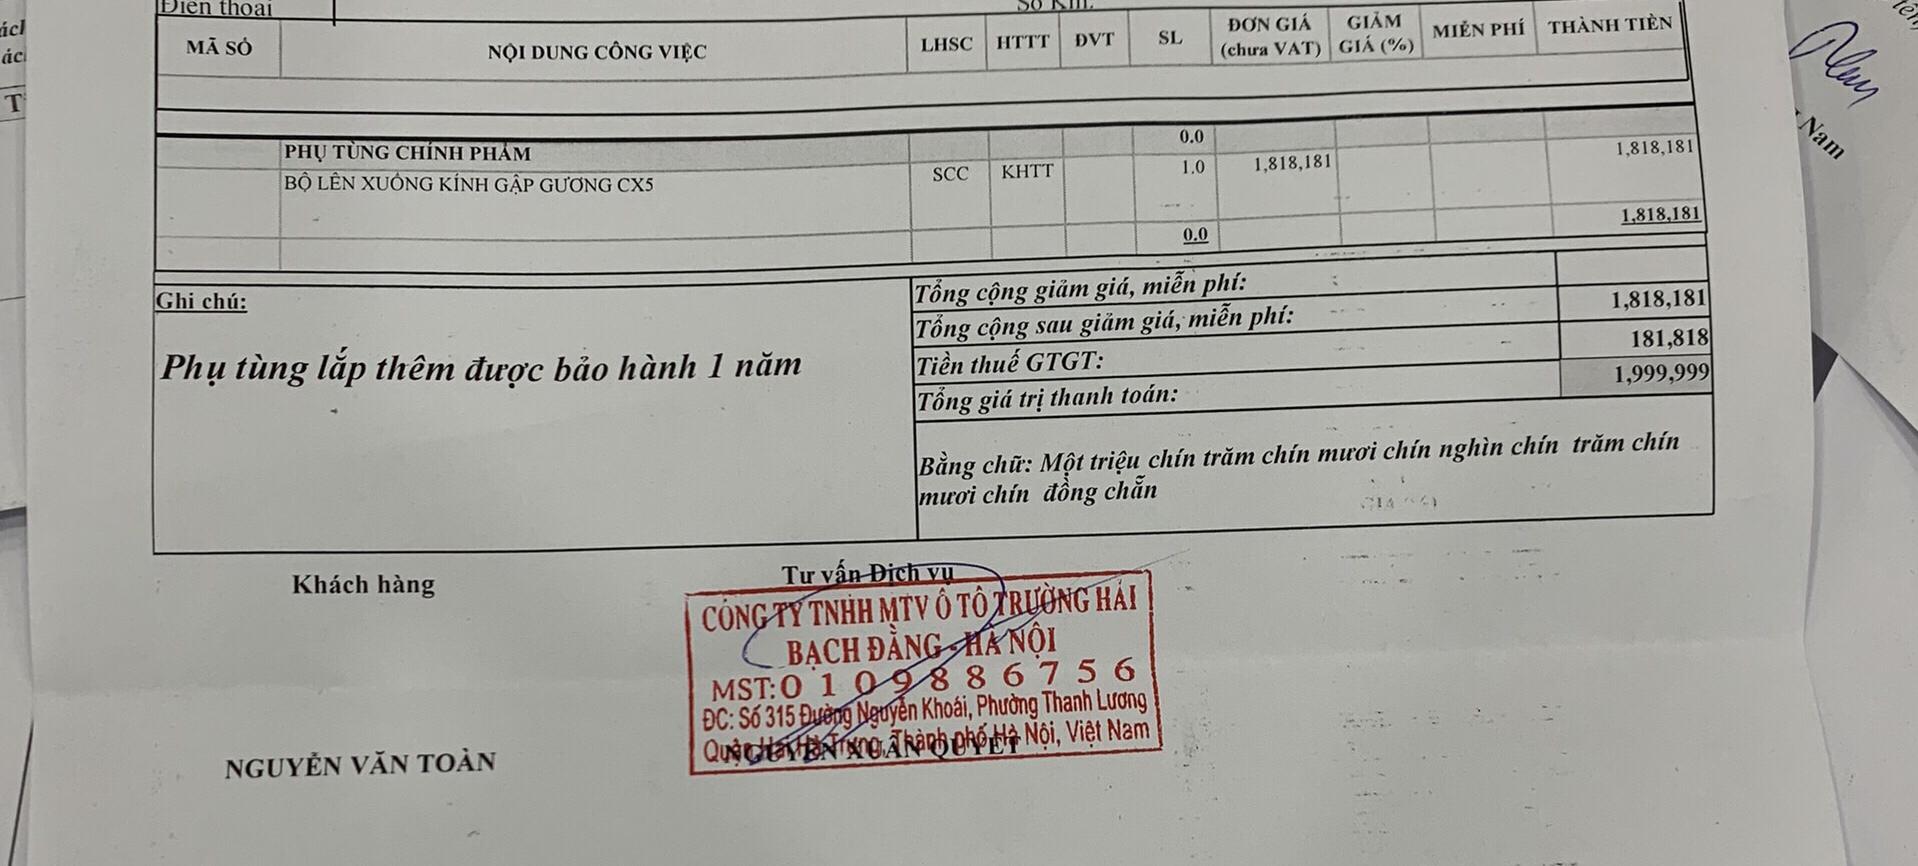 Điện thoại
Số Km:
MÃ SỐ NỘI DUNG CÔNG VIỆC LHSC HTTT ĐVT SL ĐƠN GIÁ (chưa VAT) GIẢM GIÁ (%) MIỄN PHÍ THÀNH TIỀN
PHỤ TÙNG CHÍNH PHẨM 0.0
BỘ LÊN XUỐNG KÍNH GẬP GƯƠNG CX5 SCC KHTT 1.0 1,818,181 1,818,181
0.0 1,818,181
Ghi chú:
Phụ tùng lắp thêm được bảo hành 1 năm
Tổng cộng giảm giá, miễn phí:
Tổng cộng sau giảm giá, miễn phí: 1,818,181
Tiền thuế GTGT: 181,818
Tổng giá trị thanh toán: 1,999,999
Bằng chữ: Một triệu chín trăm chín mươi chín nghìn chín trăm chín
mươi chín đồng chẵn
Khách hàng
Tư vấn Dịch vụ
CÔNG TY TNHH MTV Ô TÔ TRƯỜNG HẢI
BẠCH ĐẰNG - HÀ NỘI
MST: 0109886756
ĐC: Số 315 Đường Nguyễn Khoái, Phường Thanh Lương
Quận Hai Bà Trưng, Thành phố Hà Nội, Việt Nam
NGUYỄN XUÂN QUYẾT
NGUYỄN VĂN TOÀN
Nam